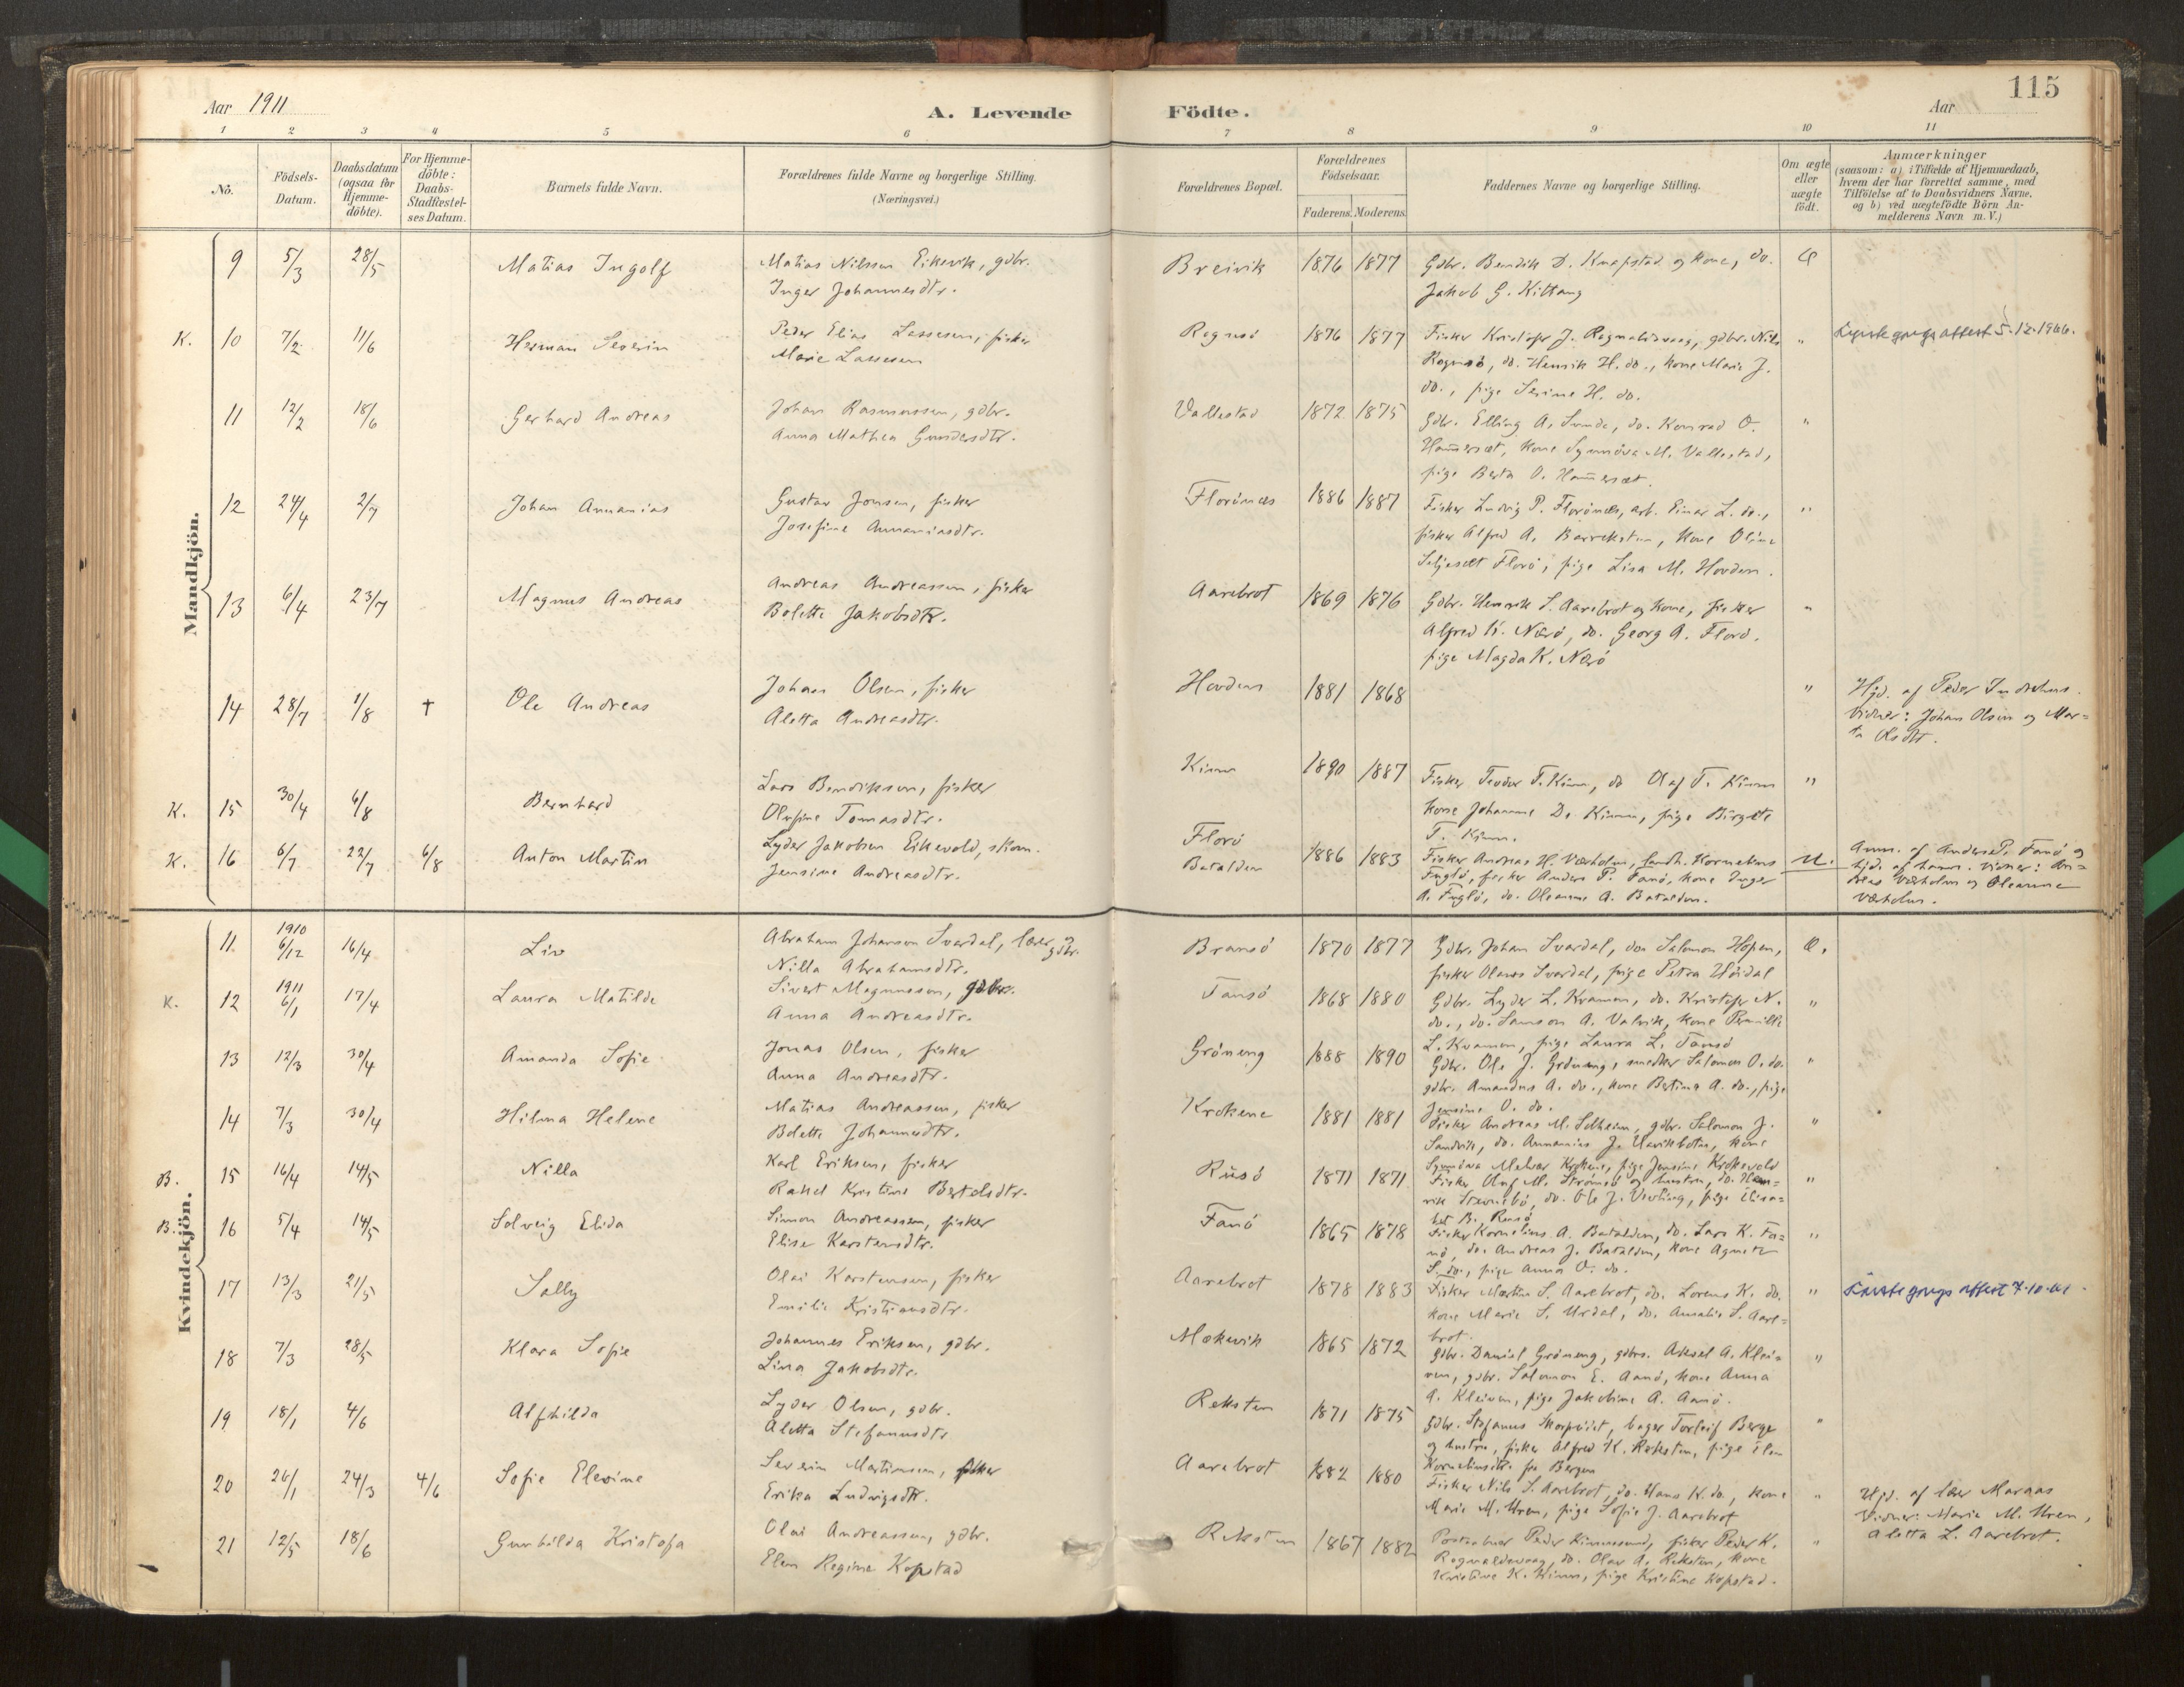 115
Aar 1911
A. Levende Födte.
Aar
1 2 3 4 5 6 7 8 9 10 11
No.
Födsels-Datum.
Daabsdatum (ogsaa for Hjemme-döbte).
For Hjemme-döbte: Daabs-Stadfæstel-ses Datum.
Barnets fulde Navn.
Forældrenes fulde Navne og borgerlige Stilling.
(Næringsvei.)
Forældrenes Bopæl.
Forældrenes Födselsaar.
Faderens. Moderens.
Faddernes Navne og borgerlige Stilling.
Om ægte eller uægte födt.
Anmærkninger
(saasom: a) i Tilfælde af Hjemmedaab, hvem der har forrettet samme, med Tilföielse af to Daabsvidners Navne, og b) ved uægtefödte Börn Anmelderens Navn m. V.)
Mandkjön.
9 5/3 28/5 Matias Ingolf Matias Nilssen Eikevik, gdbr. Breivik 1876 1877 Gdbr. Bendik D. Knapstad og kone, do. Æ
Inger Johannesdtr. Jakob G. Kittang
K. 10 7/2 11/6 Herman Severin Peder Elias Lassesen, fisker Rognsö 1876 1877 Fisker Kristofer J. Rognaldsvaag, gdbr. Nils " 5-12-1966.
Marie Lassesen Rognsö, do. Henrik H. do., kone Marie J.
do., pige Serine H. do.
11 12/2 18/6 Gerhard Andreas Johan Rasmussen, gdbr. Vallestad 1872 1875 Gdbr. Elling A. Sunde, do. Konrad O. "
Anna Mathea Gundersdtr. Hammerset, kone Synnöva M. Vallestad,
pige Berta O. Hammerset.
12 24/4 2/7 Johan Annanias Gustav Jonsen, fisker Florönæs 1886 1887 Fisker Ludvig P. Florönæs, arb. Einar L. do., "
Josefine Annaniasdtr. fisker Alfred A. Barreksten, kone Oline
Seljeset Florö, pige Lisa M. Hovden.
13 6/4 23/7 Magnus Andreas Andreas Andreassen, fisker Aarebrot 1869 1876 Gdbr. Henrik S. Aarebrot og kone, fisker "
Bolette Jakobsdtr. Alfred K. Nærö, do. Georg A. Florö.
pige Magda K. Nærö
14 28/7 1/8 † Ole Andreas Johan Olsen, fisker Hovden 1881 1868 " Hjd. af Peder Indrehus.
Aletta Andreasdtr. Vidner: Johan Olsen og Mar=
ta Olsdtr.
K. 15 30/4 6/8 Bernhard Lars Bendiksen, fisker Kinn 1890 1887 Fisker Teodor T. Kinn, do Olaf T. Kinn "
Olufine Tomasdtr. kone Johanne D. Kinn, pige Birgite
T. Kinn.
K. 16 6/7 22/7 6/8 Anton Martin Lyder Jakobsen Eikevold, skom. Florö 1886 1883 Fisker Andreas H. Værholm, landh. Kornelius U. Anm. af Anders P. Fanö og
Jensine Andreasdtr. Batalden Fuglö, fisker Anders P. Fanö, kone Inger hjd. af ham. Vidner: An=
A. Fuglö, do. Oleanne A. Batalden. dreas Værholm og Oleanne
Værholm.
Kvindekjön.
11 1910 6/12 16/4 Liv Abraham Johanson Svardal, lærer og gdbr. Bransö 1870 1877 Gdbr. Johan Svardal, do. Salomon Hopen, Æ.
Nilla Abrahamsdtr. fisker Olaus Svardal, pige Petra Höidal
K. 12 1911 6/1 17/4 Laura Matilde Sivert Magnusson, gdbr. Tansö 1868 1880 Gdbr. Lyder L. Kvamen, do. Kristofer N. "
Anna Andreasdtr. do., do. Samson A. Valvik, kone Pernille
L. Kvamen, pige Laura L. Tansö
13 12/3 30/4 Amanda Sofie Jonas Olsen, fisker Gröneng 1888 1890 Gdbr. Ole J. Gröneng, snedker Salomon O. do. "
Anna Andreasdtr. gdbr. Amandus A. do., kone Bertina A. do., pige
Jensine O. do.
14 7/3 30/4 Hilma Helene Matias Andreassen, fisker Krokene 1881 1881 Fisker Andreas M. Solheim, gdbr. Salomon J. "
Bolette Johannesdtr. Sandvik, do. Annanias J. Uvikboten, kone
Synnöva Krokene, pige Jensine Krokevold
B. 15 16/4 14/5 Nilla Karl Eriksen, fisker Rusö 1871 1871 Fisker Olaf M. Strömsö og hustru, do. Hen= "
Rakel Kristine Bertelsdtr. rik Stavnebö, do. Ole J. Vevling, pige Elisa=
bet B. Rusö
B. 16 5/4 14/5 Solveig Elida Simon Andreassen, fisker Fanö 1865 1878 Fisker Kornelius A. Batalden, do. Lars K. Fa= "
Elise Karstensdtr. nö, do. Andreas J. Batalden, kone Agnete
S. do., pige Anna O. do.
17 13/3 21/5 Sally Olai Karstensen, fisker Aarebrot 1878 1883 Fisker Martin S. Aarebrot, do. Lorens K. do. "
Emilie Kristiansdtr. kone Marie S. Urdal, do. Amalie S. Aare=
brot.
18 7/3 28/5 Klara Sofie Johannes Eriksen, gdbr. Mækevik 1865 1872 Gdbr. Daniel Gröneng, gdbrs. Aksel A. Klei= "
Lina Jakobsdtr. ven, gdbr. Salomon E. Aanö, kone Anna
A. Kleiven, pige Jakobine A. Aanö.
19 18/1 4/6 Alfhilda Lyder Olsen, gdbr. Reksten 1871 1875 Gdbr. Stefanus, bager Torleif Berge "
Aletta Stefanusdtr og hustru, fisker Alfred K. Reksten, pige Elen
Korneliusdtr. fra Bergen
20 26/1 24/3 4/6 Sofie Elevine Severin Martinsen, fisker Aarebrot 1882 1880 Fisker Nils S. Aarebrot, do. Hans K. do., kone " Hjd. af lær Maraas
Erika Ludvigsdtr. Marie M. Uren, pige Sofie J. Aarebrot Vidner: Marie M. Uren,
Aletta L. Aarebrot.
21 12/5 18/6 Gunhilda Kristofa Olai Andreassen, gdbr. Reksten 1867 1882 Peder Kinnesund, fisker Peder K. "
Elen Regine Kopstad Rognaldsvaag, do. Olav A. Reksten, kone
Kristine K. Kinn, pige Kristine Kopstad.